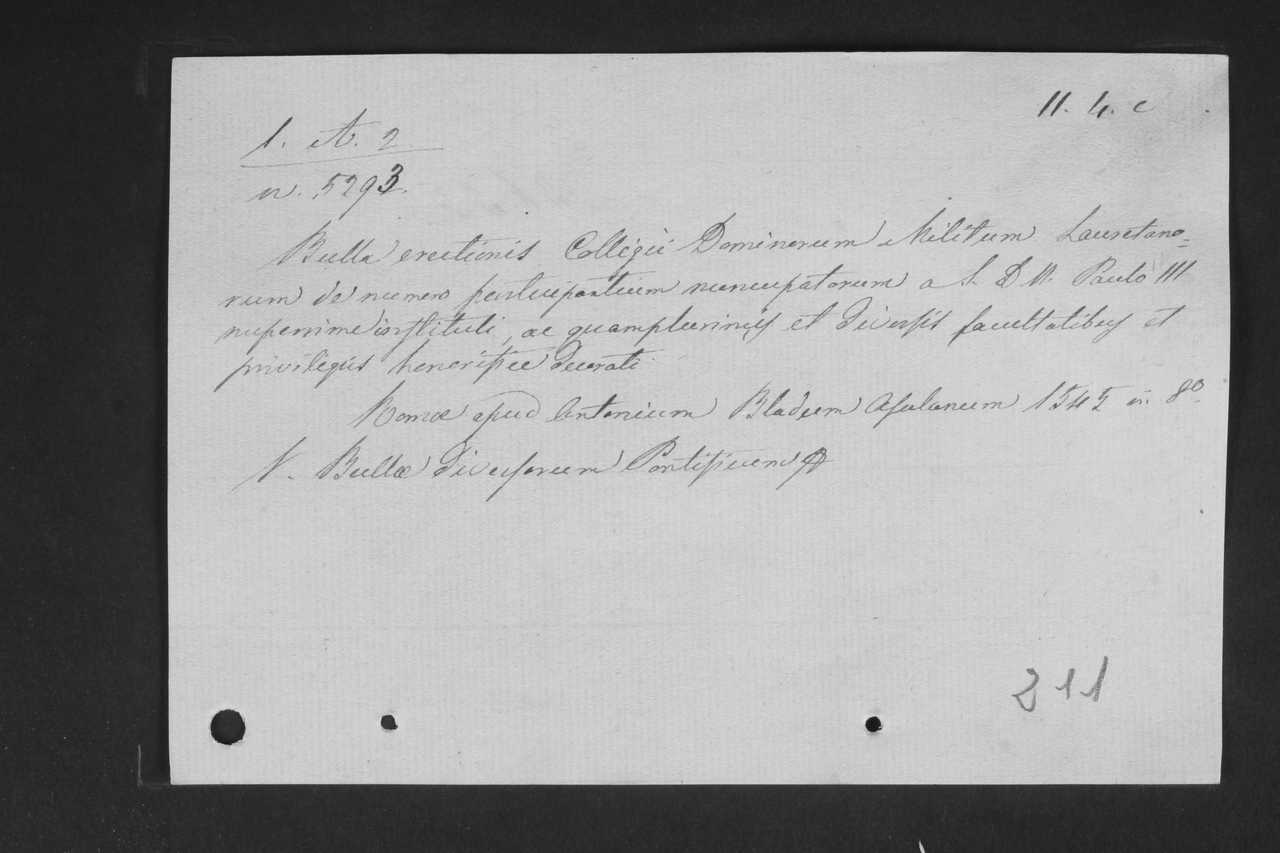 11. 4. c
1. et. 2
n. 5293.
Bulla erectionis Collegii Dominorum Militum Lauretano-
rum de numero participantium nuncupatorum a S. D. N. Paulo III
nuperrime instituti, ac quamplurimis et diversis facultatibus et
privilegiis honorifice decorati
Romæ apud Antonium Bladum Asulanum 1545 in 8º.
V. Bullæ diversorum Pontificum
211